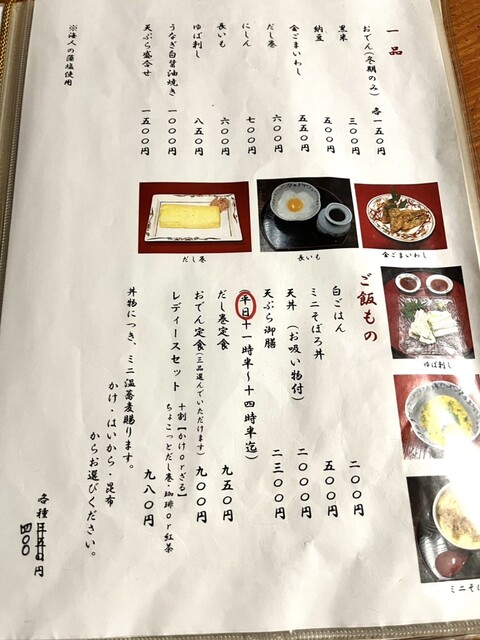 一品
おでん(冬期のみ) 各一五〇円
黒米 三〇〇円
納豆 五〇〇円
金ごまいわし 五五〇円
だし巻 六〇〇円
にしん 七〇〇円
長いも 六〇〇円
ゆば刺し 八五〇円
うなぎ白醤油焼き 一〇〇〇円
天ぷら盛合せ 一五〇〇円
※海人の藻塩使用
だし巻
長いも
金ごまいわし
ゆば刺し
ミニそぼ
ご飯もの
白ごはん 二〇〇円
ミニそぼろ丼 五〇〇円
天丼 (お吸い物付) 二〇〇〇円
天ぷら御膳 二三〇〇円
(平日十一時半〜十四時半迄)
だし巻定食 九五〇円
おでん定食(三品選んでいただけます) 九〇〇円
レディースセット 九八〇円
十割【かけorざる】
ちょこっとだし巻・珈琲or紅茶
丼物につき、ミニ温蕎麦賜ります。
かけ・はいから・昆布
からお選びください。
各種 四〇〇円